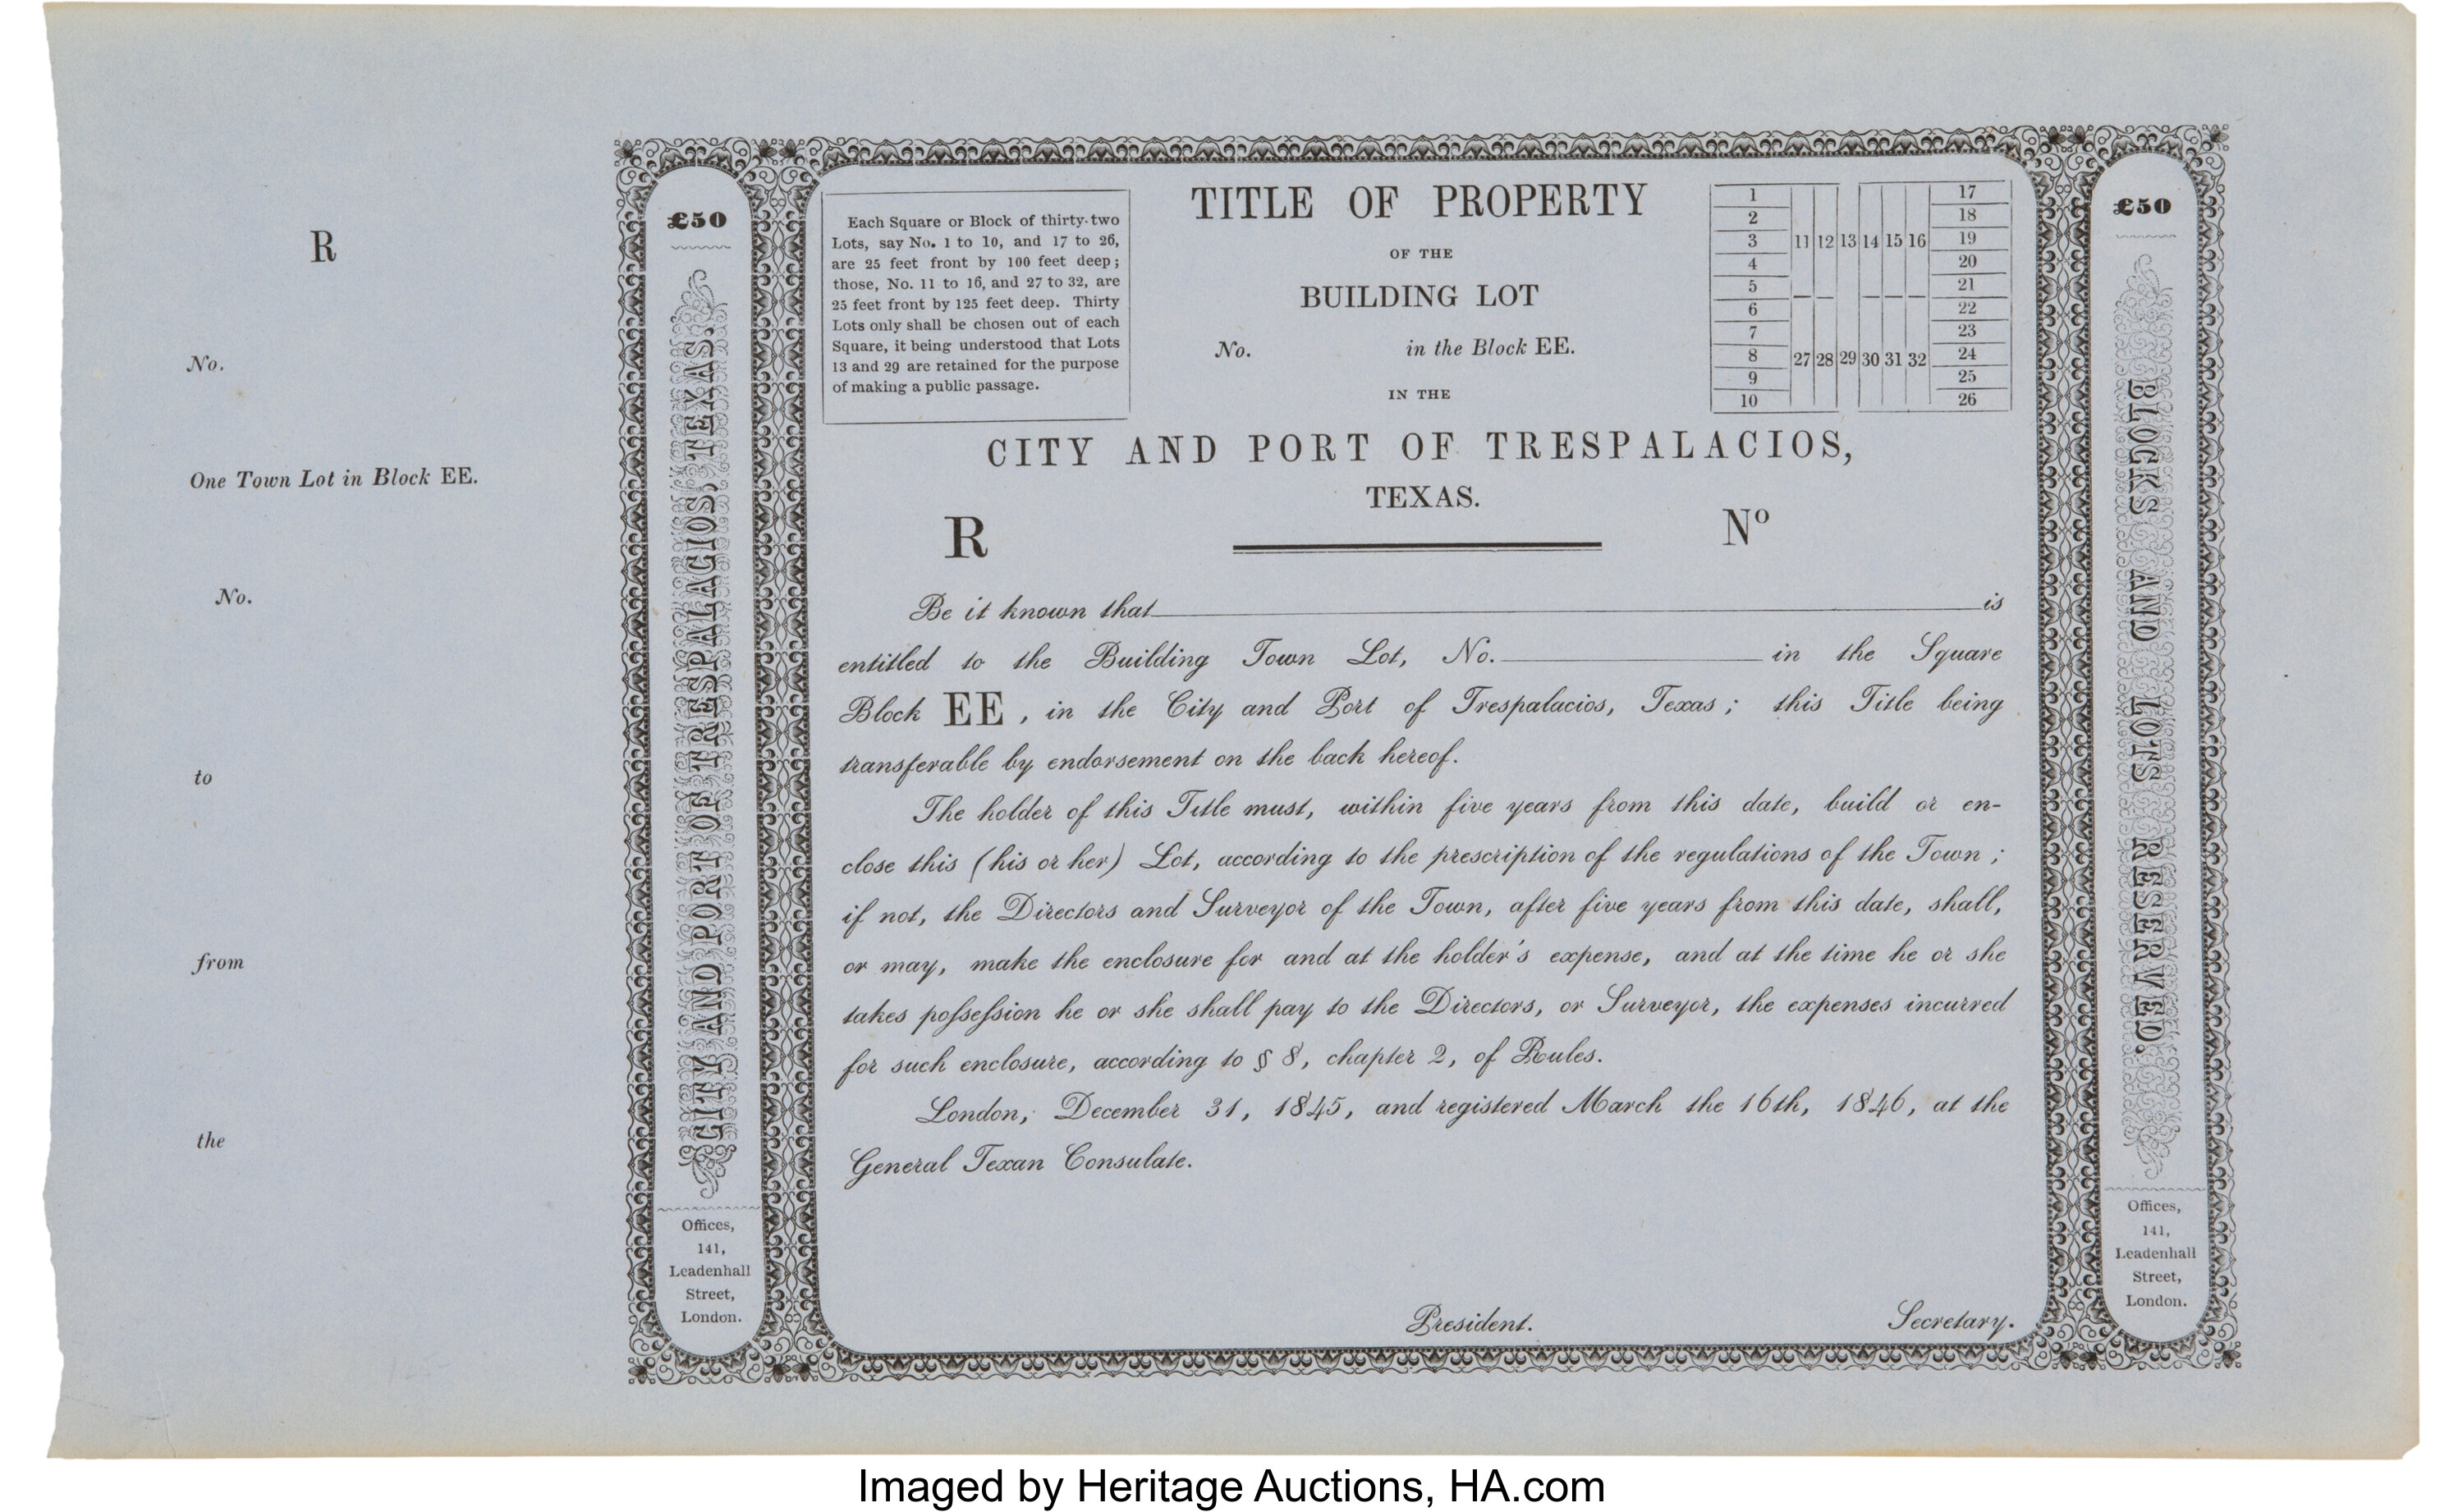 R
No.
One Town Lot in Block EE.
No.
to
from
the
£50
CITY AND PORT OF TRESPALACIOS, TEXAS.
Offices,
141,
Leadenhall
Street,
London.
Each Square or Block of thirty-two
Lots, say No. 1 to 10, and 17 to 26,
are 25 feet front by 100 feet deep;
those, No. 11 to 16, and 27 to 32, are
25 feet front by 125 feet deep. Thirty
Lots only shall be chosen out of each
Square, it being understood that Lots
13 and 29 are retained for the purpose
of making a public passage.
TITLE OF PROPERTY
OF THE
BUILDING LOT
No. in the Block EE.
IN THE
1 17
2 18
3 11 12 13 14 15 16 19
4 20
5 21
6 22
7 23
8 27 28 29 30 31 32 24
9 25
10 26
CITY AND PORT OF TRESPALACIOS,
TEXAS.
R Nº
Be it known that is
entitled to the Building Town Lot, No. in the Square
Block EE, in the City and Port of Trespalacios, Texas; this Title being
transferable by endorsement on the back hereof.
The holder of this Title must, within five years from this date, build or en-
close this (his or her) Lot, according to the prescription of the regulations of the Town;
if not, the Directors and Surveyor of the Town, after five years from this date, shall,
or may, make the enclosure for and at the holder's expense, and at the time he or she
takes poſseſsion he or she shall pay to the Directors, or Surveyor, the expenses incurred
for such enclosure, according to § 8, chapter 2, of Rules.
London, December 31, 1845, and registered March the 16th, 1846, at the
General Texan Consulate.
President. Secretary.
£50
BLOCKS AND LOTS RESERVED.
Offices,
141,
Leadenhall
Street,
London.
Imaged by Heritage Auctions, HA.com